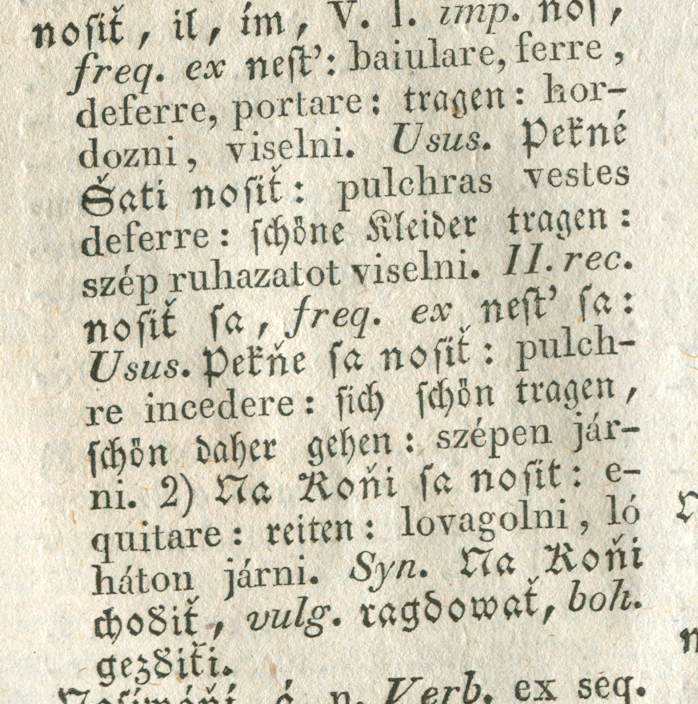 noſiť, il, ím, V. I. imp. noſ,
freq. ex neſt': baiulare, ferre,
deferre, portare: tragen: hor-
dozni, viselni. Usus. Pekné
Šati noſiť: pulchras vestes
deferre: ſchöne Kleider tragen:
szép ruhazatot viselni. II. rec.
noſiť ſa, freq. ex neſt' ſa:
Usus. Pekňe ſa noſiť: pulch-
re incedere: ſich ſchön tragen,
ſchön daher gehen: szépen jár-
ni. 2) Na Koňi ſa noſit: e-
quitare: reiten: lovagolni, ló
háton járni. Syn. Na Koňi
choďiť, vulg. ragdowať, boh.
gezďiťi.
Noſímáňí, á, n. Verb. ex seq.